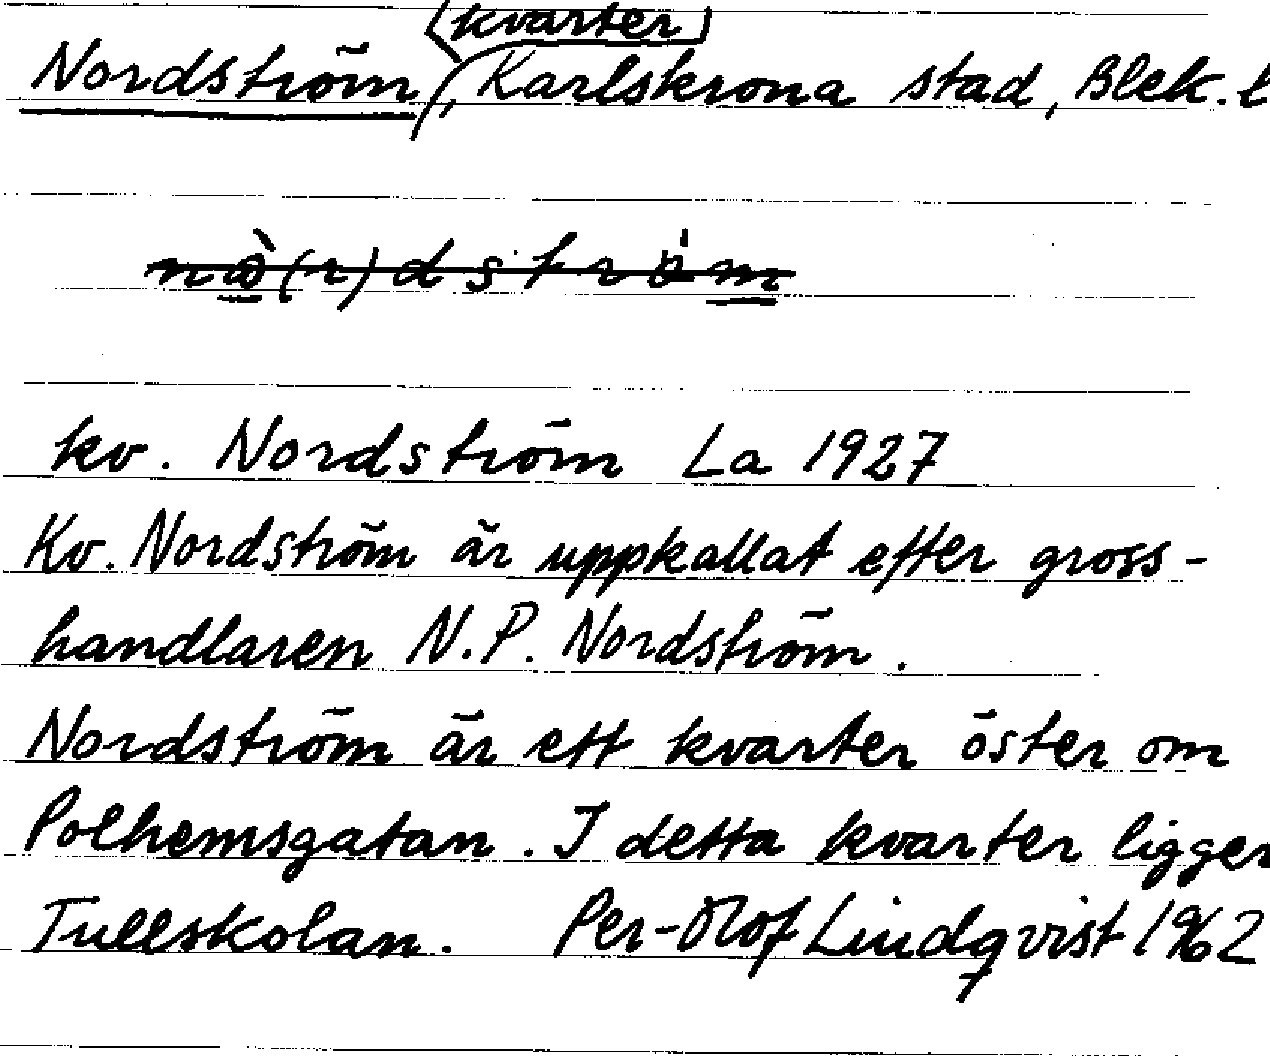 (kvarter)
Nordström, Karlskrona stad, Blek. l
nå̀(r)dströ̀m
kv. Nordström La 1927
Kv. Nordström är uppkallat efter gross-
handlaren N.P. Nordström.
Nordström är ett kvarter öster om
Polhemsgatan. I detta kvarter ligger
Tullskolan. Per-Olof Lindqvist 1962